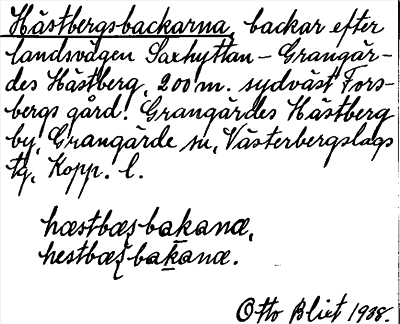 Hästbergsbackarna, backar efter
landsvägen Saxhyttan – Grangär-
des Hästberg, 200 m. sydväst Fors-
bergs gård. Grangärdes Hästberg
by, Grangärde sn, Västerbergslags
tg, Kopp. l.
hæstbæʂbakanæ,
hestbæʂbakanæ.
Otto Blixt 1928.